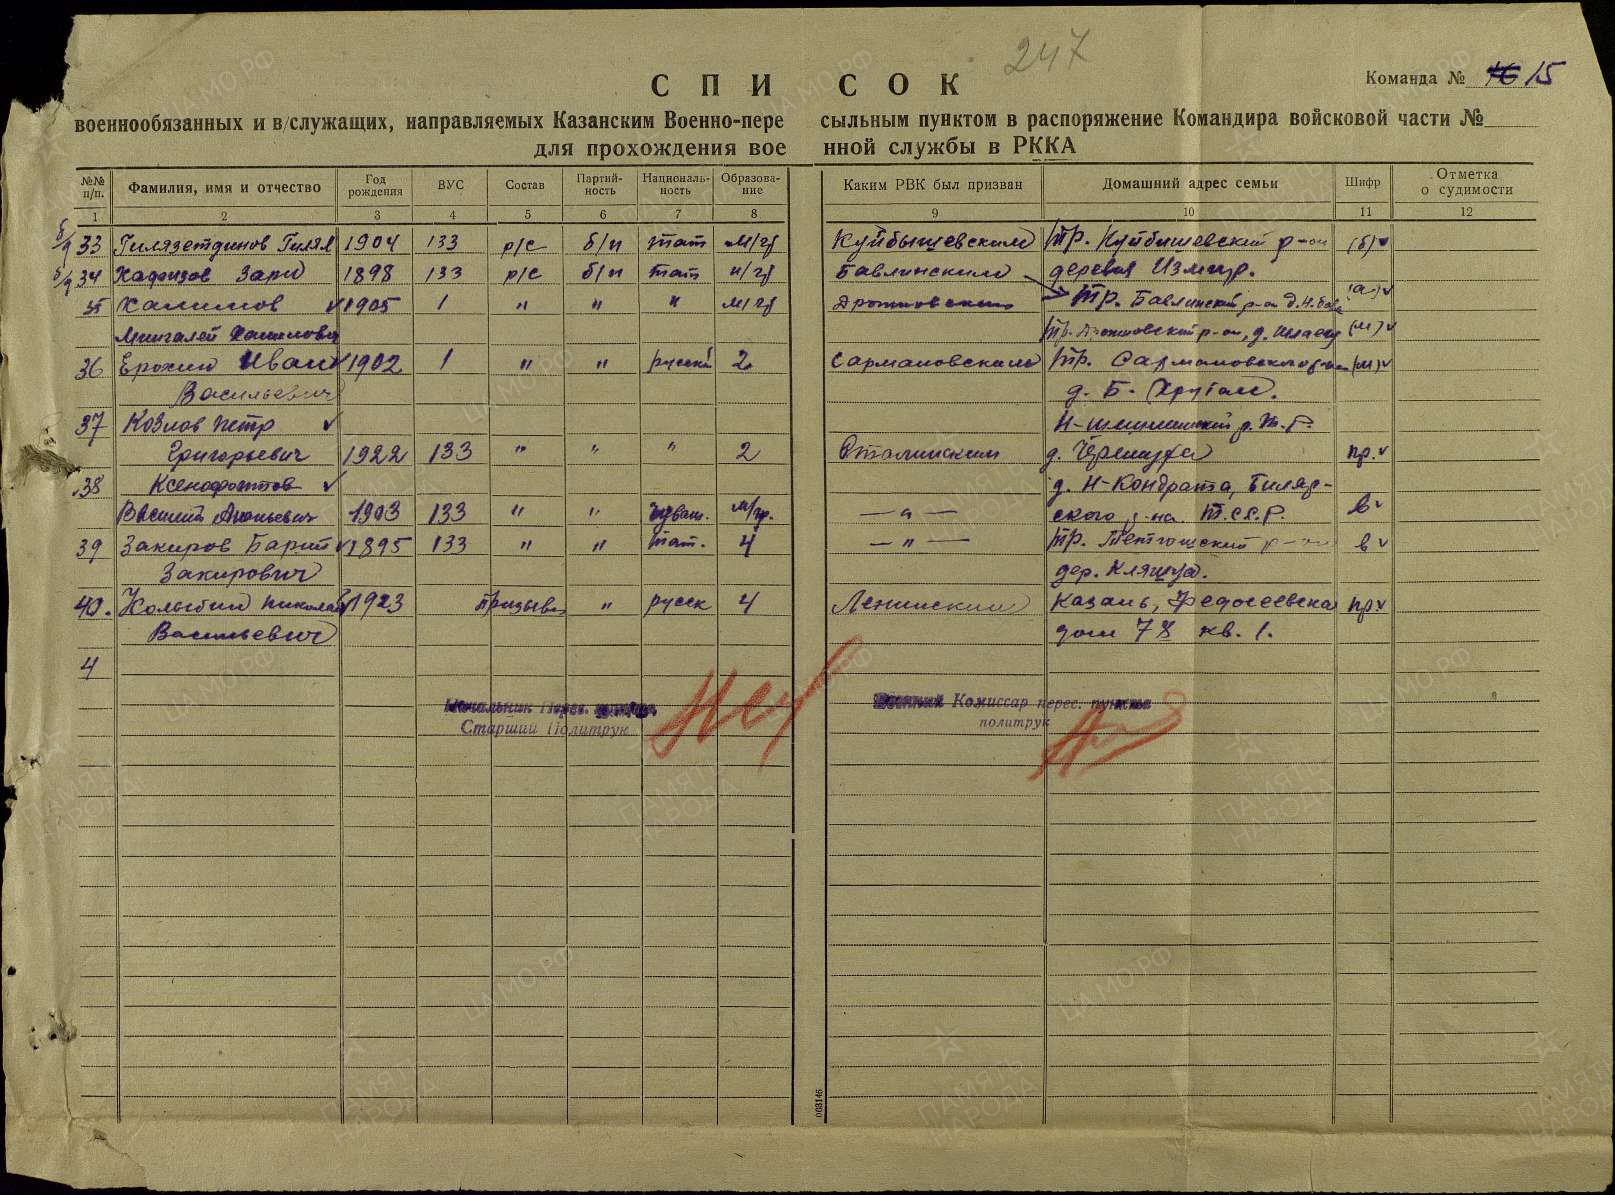 247
СПИСОК
Команда № 16 15
военнообязанных и в/служащих, направляемых Казанским Военно-пересыльным пунктом в распоряжение Командира войсковой части №
для прохождения военной службы в РККА
№№ п/п. Фамилия, имя и отчество Год рождения ВУС Состав Партийность Националь-ность Образова-ние Каким РВК был призван Домашний адрес семьи Шифр Отметка о судимости
1 2 3 4 5 6 7 8 9 10 11 12
б/я 33 Гилязетдинов Гилял 1904 133 р/с б/п тат м/гр Куйбышевским ТР. Куйбышевский р-он (б)
б/я 34 Хафизов Зари 1898 133 р/с б/п тат н/гр Бавлинским деревня Измир.
35 Халимов 1905 1 " " " м/гр ТР. Бавлинский р-он д. Н. Бав (а)
Мингалей ТР. р-он, д. (м)
36 Ерохин Иван 1902 1 " " русский 2 Сармановским ТР. Сармановского р-на (м)
Васильевич д. Б.
37 Козлов Петр Н-шешминский р. Т.Р.
Григорьевич 1922 133 " " " 2 Сталинским д. Черемуха пр.
38 Ксенофонтов д. Н-Кондрата, Биляр-
Василий Ананьевич 1903 133 " " чуваш. м/гр. — " — ского р-на. Т.С.С.Р. в
39 Закиров Барит 1895 133 " " тат. 4 — " — ТР. Тетюшский р-он в
Закирович дер. Кляшуа.
40. Колыбин Николай 1923 призывн " русск 4 Ленинским Казань, Федосеевска пр
Васильевич дом 78 кв. 1.
4
Начальник Перес. пункта Военный Комиссар перес. пункта
Старший Политрук политрук
008146